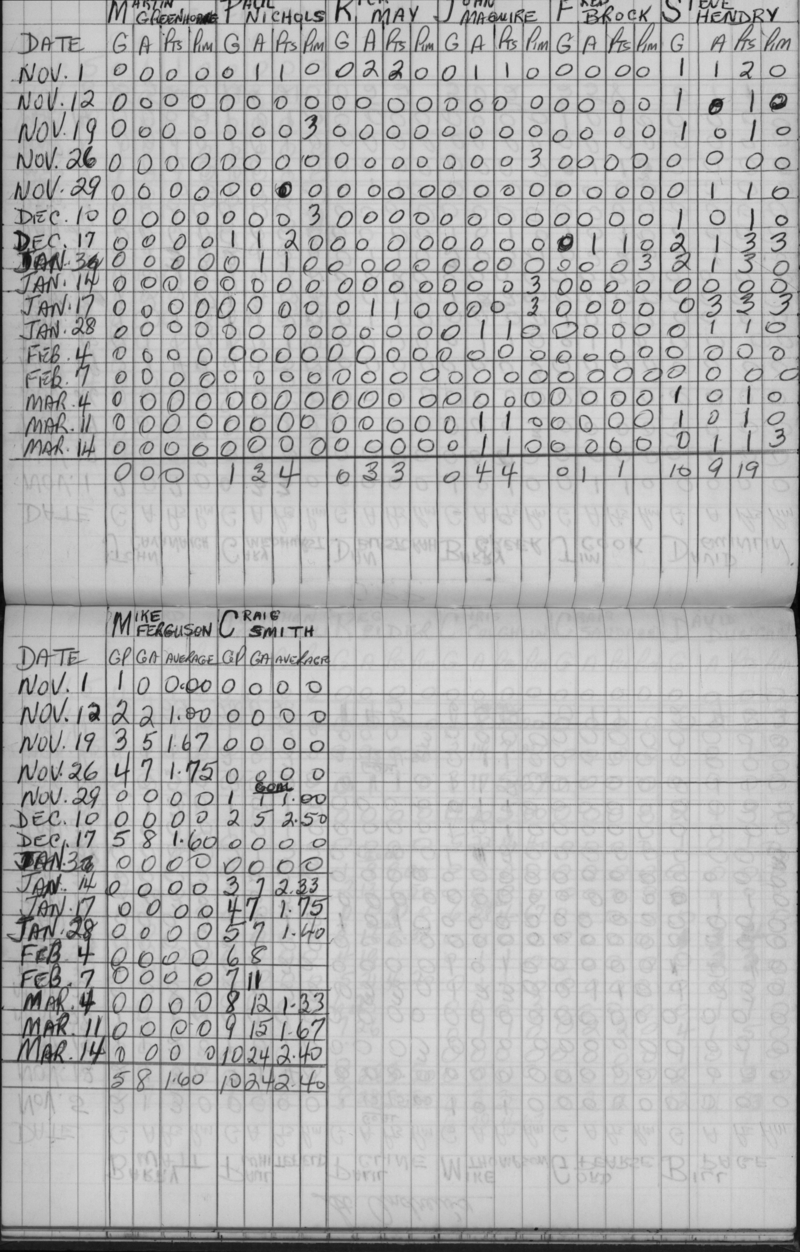 MARTIN GREENHORNE PAUL NICHOLS RICK MAY JOHN MAGUIRE FRED BROCK STEVE HENDRY
DATE G A Pts Pim G A Pts Pim G A Pts Pim G A Pts Pim G A Pts Pim G A Pts Pim
NOV. 1 0 0 0 0 0 1 1 0 0 2 2 0 0 1 1 0 0 0 0 0 1 1 2 0
NOV. 12 0 0 0 0 0 0 0 0 0 0 0 0 0 0 0 0 0 0 0 0 1 0 1 0
NOV. 19 0 0 0 0 0 0 0 3 0 0 0 0 0 0 0 0 0 0 0 0 1 0 1 0
NOV. 26 0 0 0 0 0 0 0 0 0 0 0 0 0 0 0 3 0 0 0 0 0 0 0 0
NOV. 29 0 0 0 0 0 0 0 0 0 0 0 0 0 0 0 0 0 0 0 0 0 1 1 0
DEC. 10 0 0 0 0 0 0 0 3 0 0 0 0 0 0 0 0 0 0 0 0 1 0 1 0
DEC. 17 0 0 0 0 1 1 2 0 0 0 0 0 0 0 0 0 0 1 1 0 2 1 3 3
JAN. 0 0 0 0 0 1 1 0 0 0 0 0 0 0 0 0 0 0 0 3 2 1 3 0
JAN. 14 0 0 0 0 0 0 0 0 0 0 0 0 0 0 0 3 0 0 0 0 0 0 0 0
JAN. 17 0 0 0 0 0 0 0 0 0 1 1 0 0 0 0 3 0 0 0 0 0 3 3 3
JAN. 28 0 0 0 0 0 0 0 0 0 0 0 0 0 1 1 0 0 0 0 0 0 1 1 0
FEB. 4 0 0 0 0 0 0 0 0 0 0 0 0 0 0 0 0 0 0 0 0 0 0 0 0
FEB. 7 0 0 0 0 0 0 0 0 0 0 0 0 0 0 0 0 0 0 0 0 0 0 0 0
MAR. 4 0 0 0 0 0 0 0 0 0 0 0 0 0 0 0 0 0 0 0 0 1 0 1 0
MAR. 11 0 0 0 0 0 0 0 0 0 0 0 0 0 1 1 0 0 0 0 0 1 0 1 0
MAR. 14 0 0 0 0 0 0 0 0 0 0 0 0 0 1 1 0 0 0 0 0 0 1 1 3
0 0 0 1 3 4 0 3 3 0 4 4 0 1 1 10 9 19
MIKE FERGUSON CRAIG SMITH
DATE GP GA AVERAGE GP GA AVERAGE
NOV. 1 1 0 0.00 0 0 0 0
NOV. 12 2 2 1.00 0 0 0 0
NOV. 19 3 5 1.67 0 0 0 0
NOV. 26 4 7 1.75 0 0 0 0
NOV. 29 0 0 0 0 1 1 1.00
DEC. 10 0 0 0 0 2 5 2.50
DEC. 17 5 8 1.60 0 0 0 0
JAN. 0 0 0 0 0 0 0 0
JAN. 14 0 0 0 0 3 7 2.33
JAN. 17 0 0 0 0 4 7 1.75
JAN. 28 0 0 0 0 5 7 1.40
FEB. 4 0 0 0 0 6 8
FEB. 7 0 0 0 0 7 11
MAR. 4 0 0 0 0 8 12 1.33
MAR. 11 0 0 0 0 9 15 1.67
MAR. 14 0 0 0 0 10 24 2.40
5 8 1.60 10 24 2.40